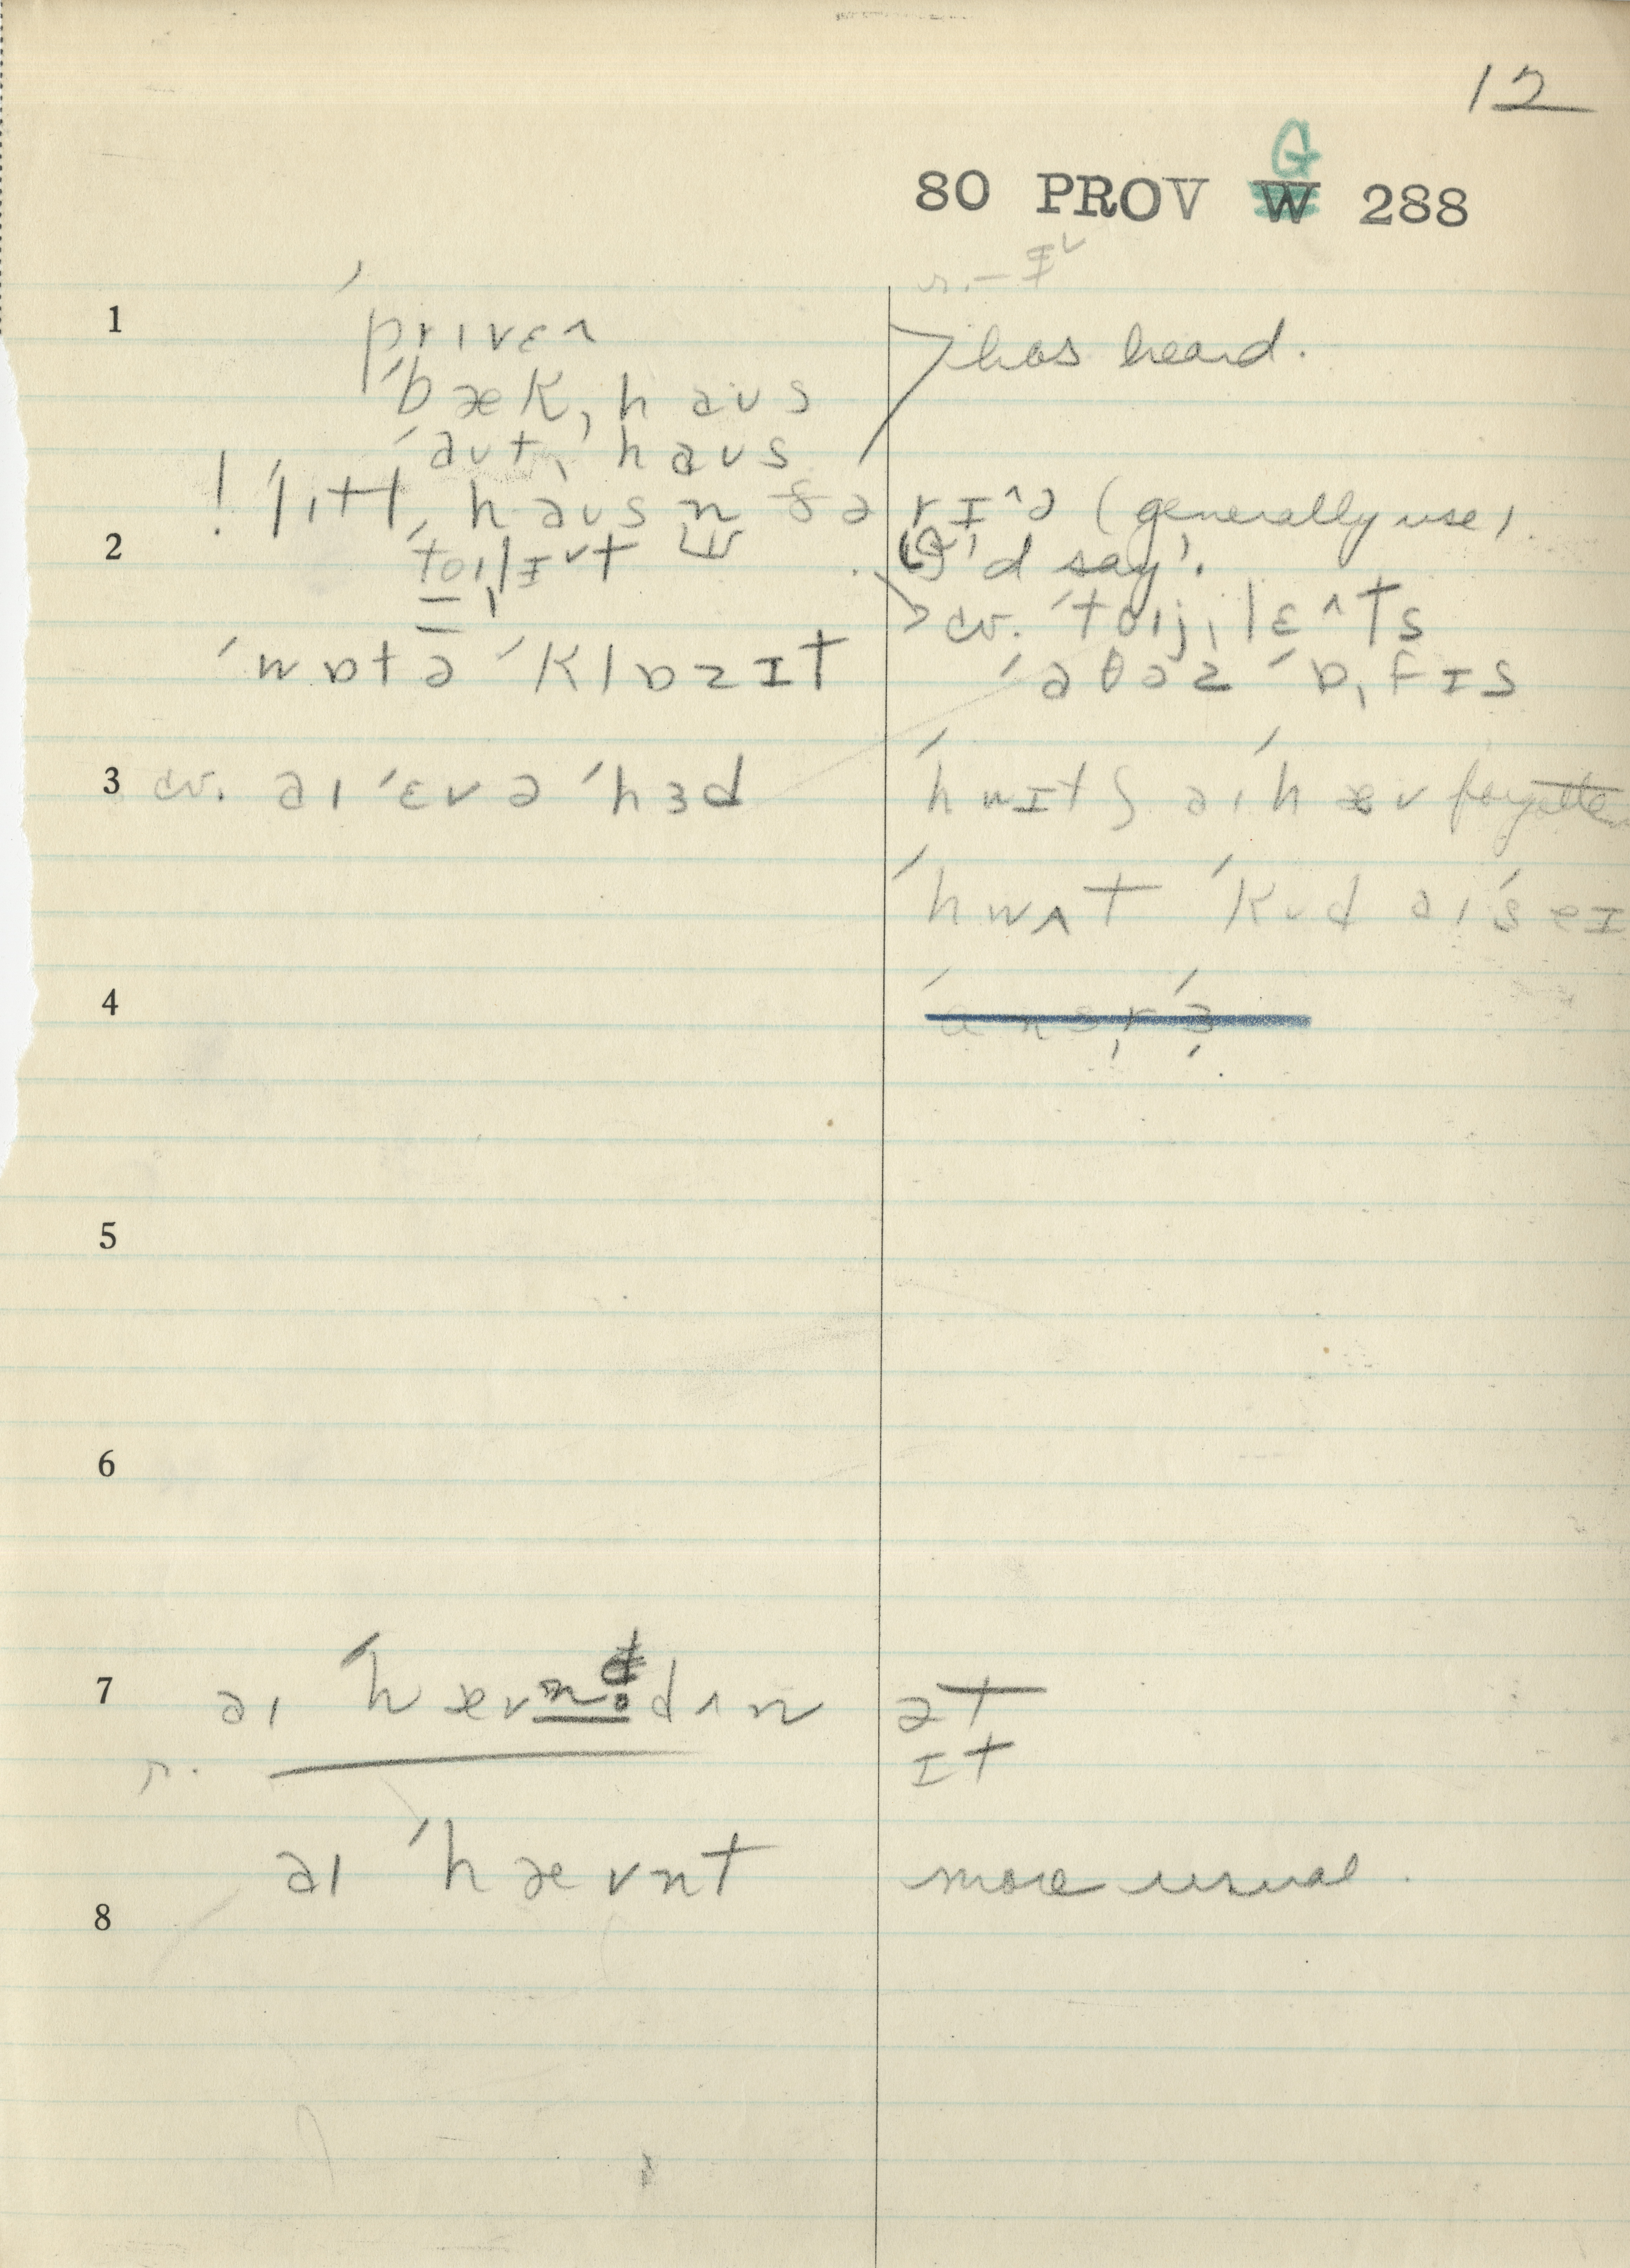 12
G
80 PROV W 288
r. – ɪ˅
1 ˈprɪvɛ˄ has heard.
ˈbækˌhaʊs
ˈaʊtˌhaʊs
! ˈlɪtlˌhaʊs ɪn ðə rɪ˄ə (generally use).
2 tɔɪlɪ˅t I'd say'.
cv. ˈtɔɪjˌlɛ˄ts
ˈwɒtə ˈklɒzɪt ˈaθəz ˈɒˌfɪs
3 cv. aɪ ˈɛvə ˈhɜd ˈhwɪtʃ aɪ ˈhæv forgotten
ˈhwʌt ˈkʊd aɪ ˈseɪ
4
5
6
7 aɪ ˈhævn̩ dʌn ət
r. ɪt
aɪ ˈhævnt more usual.
8